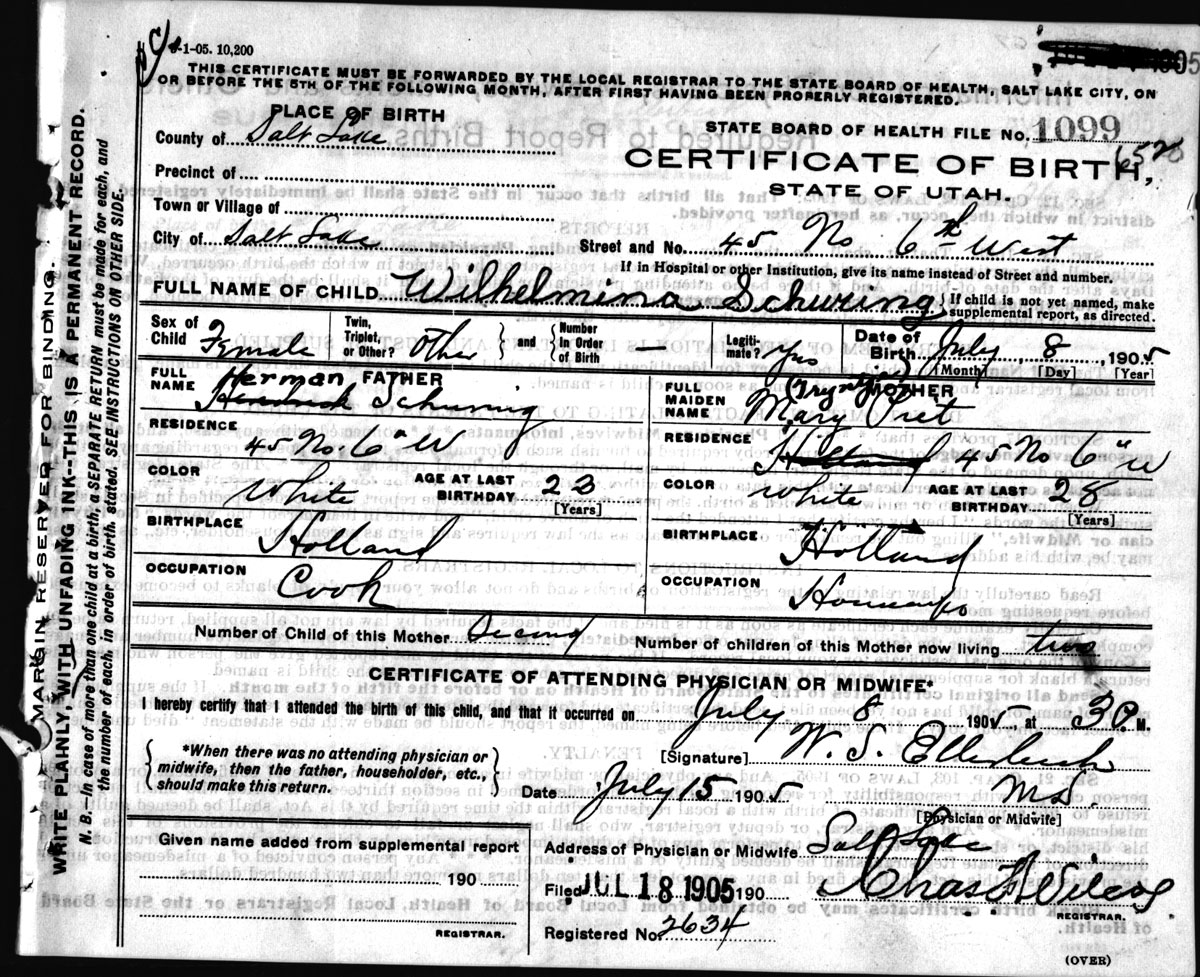 8-1-05. 10,200
THIS CERTIFICATE MUST BE FORWARDED BY THE LOCAL REGISTRAR TO THE STATE BOARD OF HEALTH, SALT LAKE CITY, ON
OR BEFORE THE 5TH OF THE FOLLOWING MONTH, AFTER FIRST HAVING BEEN PROPERLY REGISTERED.
PLACE OF BIRTH
County of Salt Lake
Precinct of
Town or Village of
City of Salt Lake
STATE BOARD OF HEALTH FILE No. 1099
CERTIFICATE OF BIRTH,
STATE OF UTAH.
Street and No. 45 No 6th West
If in Hospital or other Institution, give its name instead of Street and number.
FULL NAME OF CHILD Wilhelmina Schuring { If child is not yet named, make supplemental report, as directed.
Sex of Child Female Twin, Triplet, or Other? Other and Number in Order of Birth — Legitimate? yes Date of Birth July 8, 1905
[Month] [Day] [Year]
FATHER
FULL NAME Herman Hendrick Schuring
RESIDENCE
45 No. 6" W
COLOR White AGE AT LAST BIRTHDAY 23
[Years]
BIRTHPLACE
Holland
OCCUPATION
Cook
MOTHER
FULL MAIDEN NAME Mary
RESIDENCE
Holland 45 No 6" W
COLOR White AGE AT LAST BIRTHDAY 28
[Years]
BIRTHPLACE
Holland
OCCUPATION
Number of Child of this Mother Number of children of this Mother now living two
CERTIFICATE OF ATTENDING PHYSICIAN OR MIDWIFE.*
I hereby certify that I attended the birth of this child, and that it occurred on July 8 1905, at 3 P M.
*When there was no attending physician or
midwife, then the father, householder, etc.,
should make this return.
[Signature] W. S. Ellerbeck
Date July 15 1905 MD.
[Physician or Midwife]
Given name added from supplemental report
190
REGISTRAR.
Address of Physician or Midwife Salt Lake
Filed JUL 18 1905 190
REGISTRAR.
Registered No. 2634
(OVER)
MARGIN RESERVED FOR BINDING.
WRITE PLAINLY WITH UNFADING INK--THIS IS A PERMANENT RECORD.
N. B. In case of more than one child at a birth, a SEPARATE RETURN must be made for each, and
the number of each, in order of birth, stated. SEE INSTRUCTIONS ON OTHER SIDE.